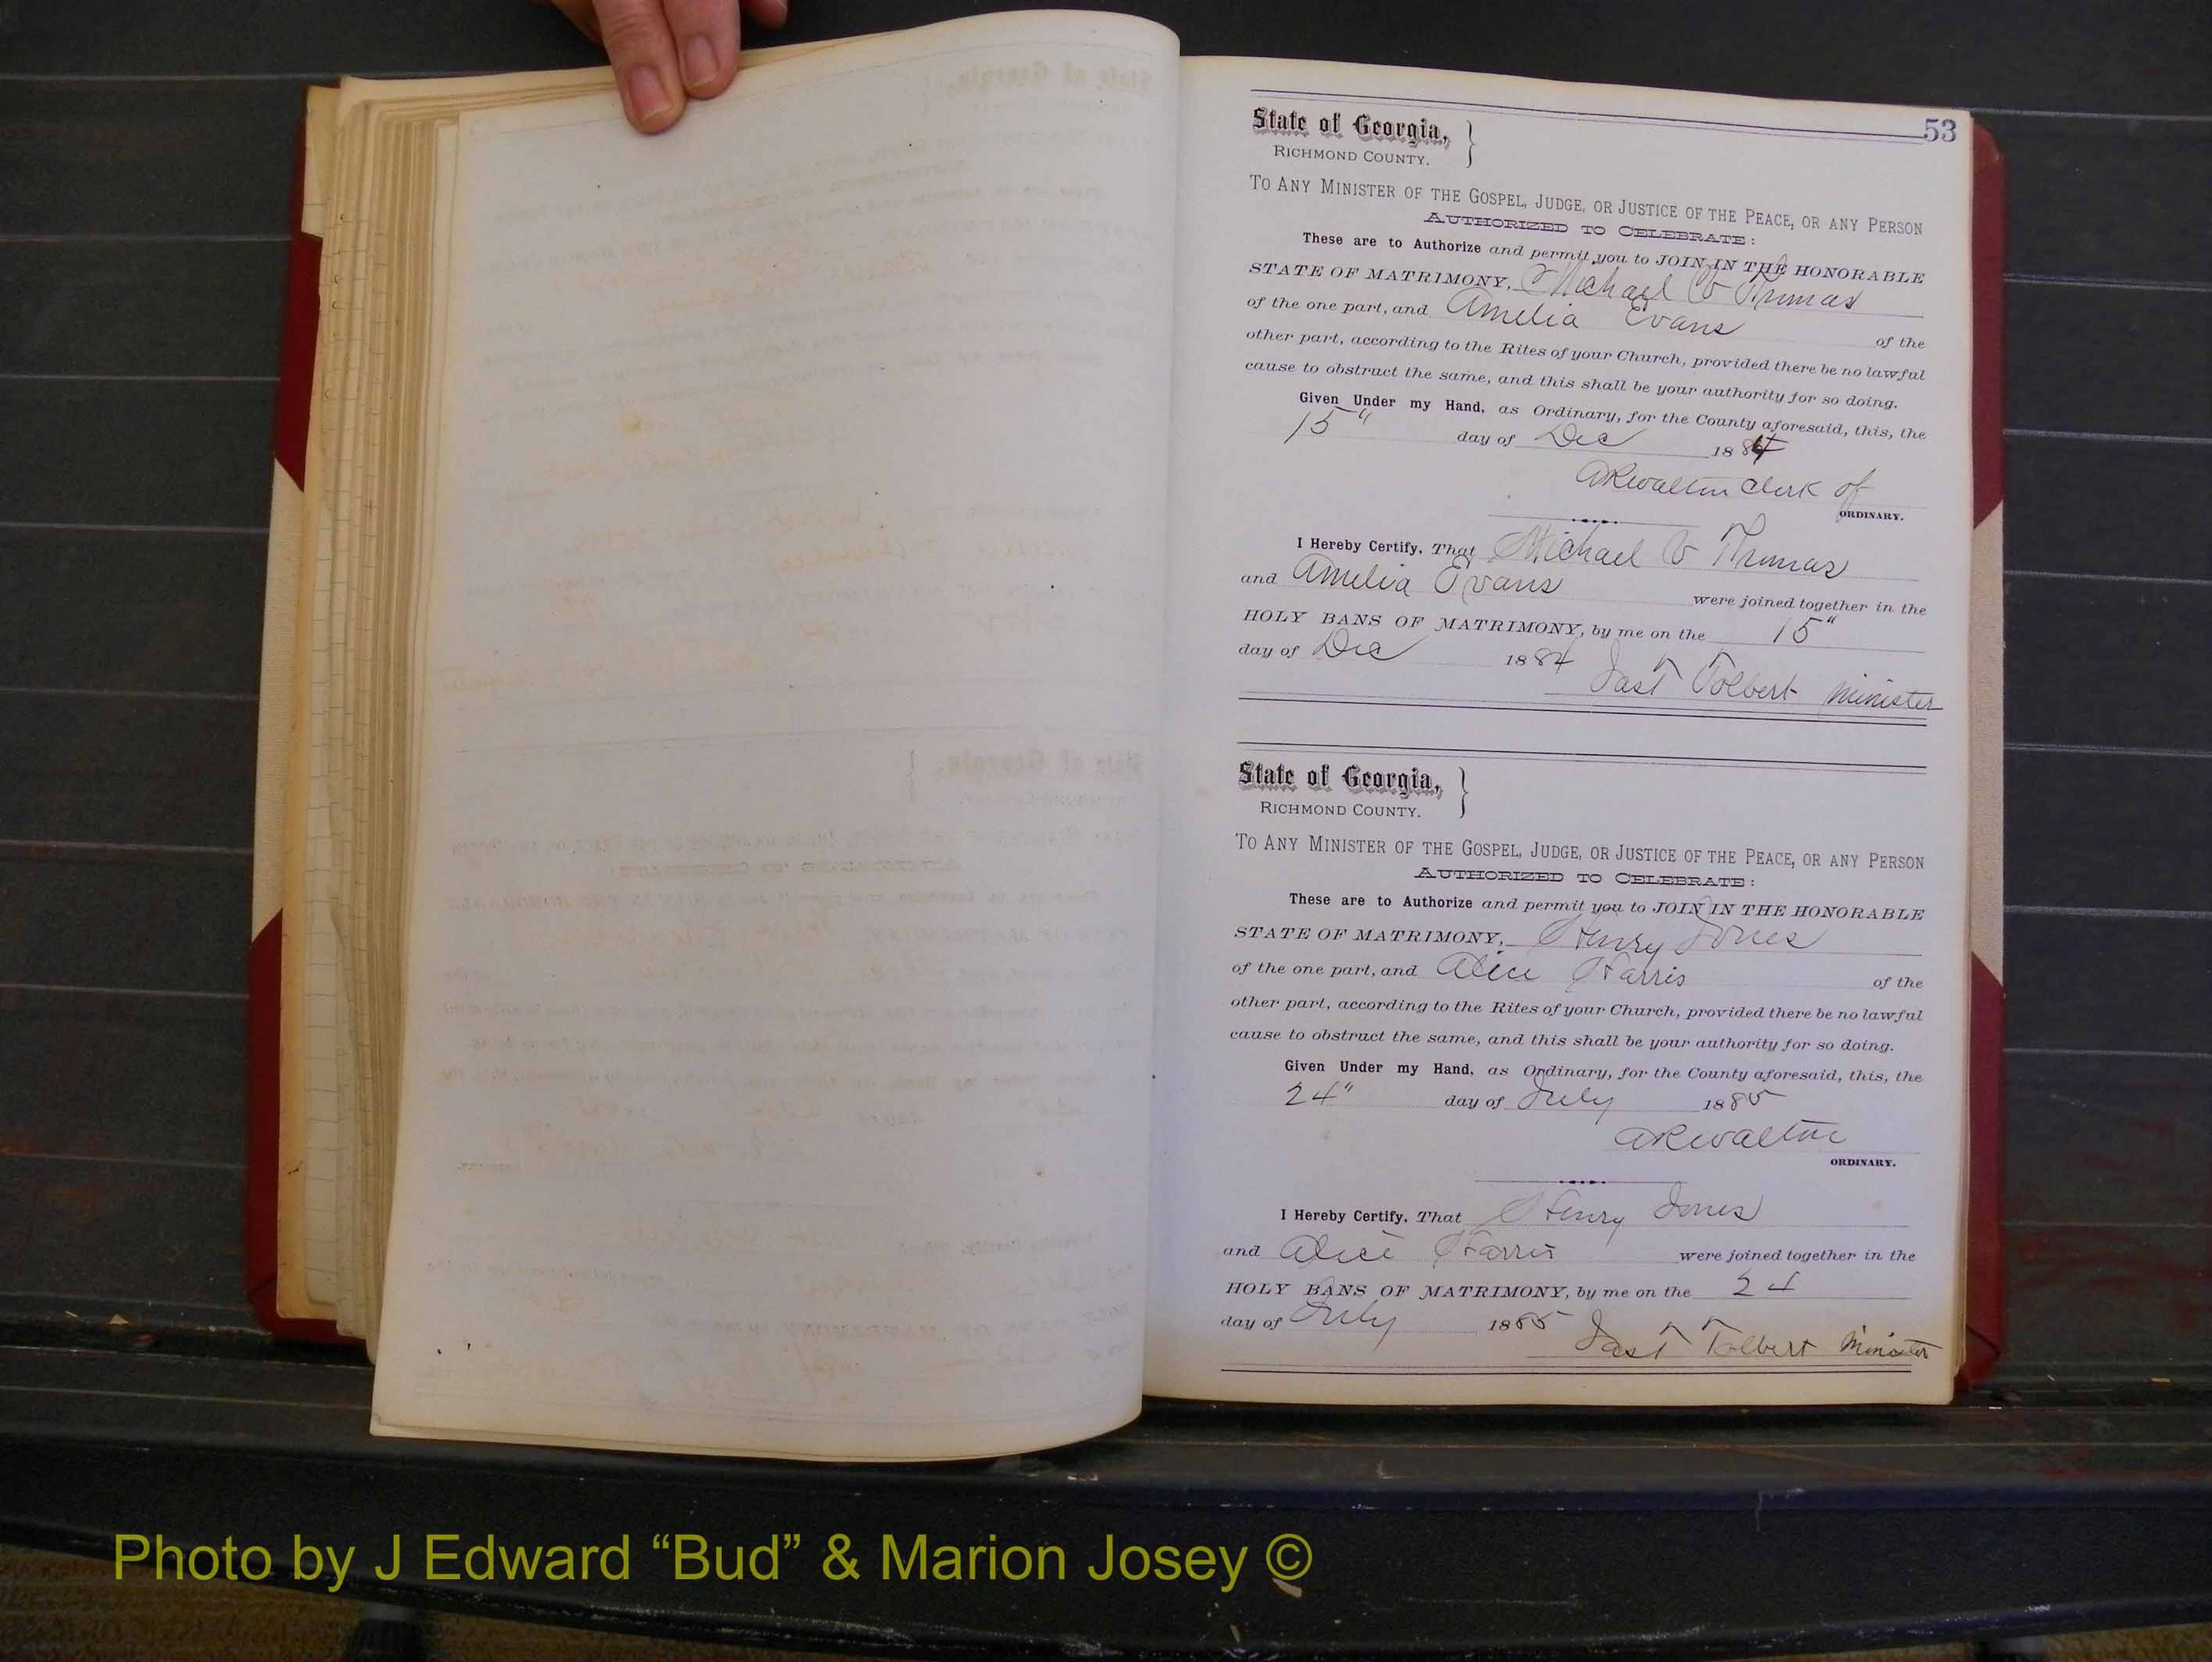 53
State of Georgia,
RICHMOND COUNTY.
TO ANY MINISTER OF THE GOSPEL, JUDGE, OR JUSTICE OF THE PEACE, OR ANY PERSON
AUTHORIZED TO CELEBRATE:
These are to Authorize and permit you to JOIN IN THE HONORABLE
STATE OF MATRIMONY, Michael Thomas
of the one part, and Amelia Evans of the
other part, according to the Rites of your Church, provided there be no lawful
cause to obstruct the same, and this shall be your authority for so doing.
Given Under my Hand, as Ordinary, for the County aforesaid, this, the
15" day of Dec 1884
ARWalton Clerk of
ORDINARY.
I Hereby Certify, That Michael Thomas
and Amelia Evans were joined together in the
HOLY BANS OF MATRIMONY, by me on the 15"
day of Dec 1884 Tolbert Minister
State of Georgia,
RICHMOND COUNTY.
TO ANY MINISTER OF THE GOSPEL, JUDGE, OR JUSTICE OF THE PEACE, OR ANY PERSON
AUTHORIZED TO CELEBRATE:
These are to Authorize and permit you to JOIN IN THE HONORABLE
STATE OF MATRIMONY, Henry Jones
of the one part, and Alice Harris of the
other part, according to the Rites of your Church, provided there be no lawful
cause to obstruct the same, and this shall be your authority for so doing.
Given Under my Hand, as Ordinary, for the County aforesaid, this, the
24" day of July 1885
ARWalton
ORDINARY.
I Hereby Certify, That Henry Jones
and Alice Harris were joined together in the
HOLY BANS OF MATRIMONY, by me on the 24
day of July 1885 Tolbert Minister
Photo by J Edward “Bud” & Marion Josey ©